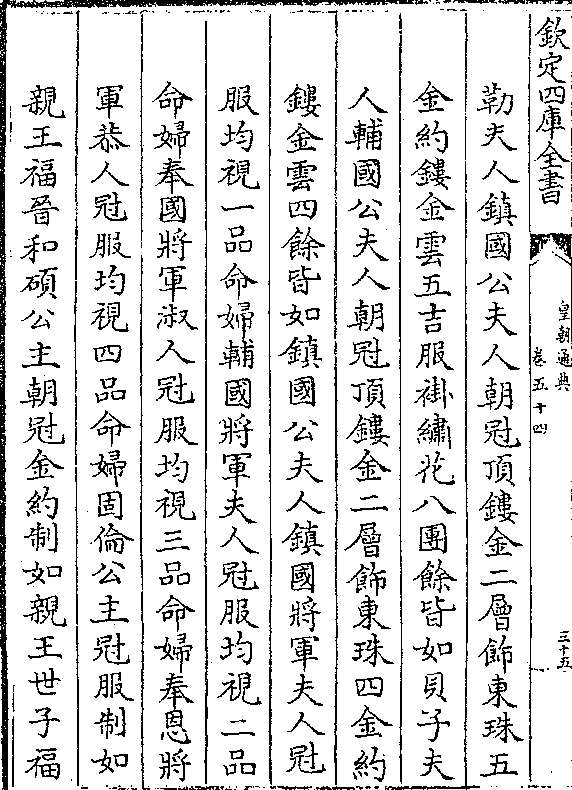 欽定四庫全書
皇朝通典
卷五十四
三十五
勒夫人鎮國公夫人朝冠頂鏤金二層飾東珠五
金約鏤金雲五吉服褂繡花八團餘皆如貝子夫
人輔國公夫人朝冠頂鏤金二層飾東珠四金約
鏤金雲四餘皆如鎮國公夫人鎮國將軍夫人冠
服均視一品命婦輔國將軍夫人冠服均視二品
命婦奉國將軍淑人冠服均視三品命婦奉恩將
軍恭人冠服均視四品命婦固倫公主冠服制如
親王福晉和碩公主朝冠金約制如親王世子福